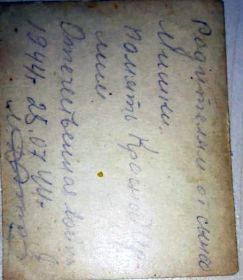 Родителям от сына
Мишки.
Память Красной Ар
мии
Отечественная
1944 28.07